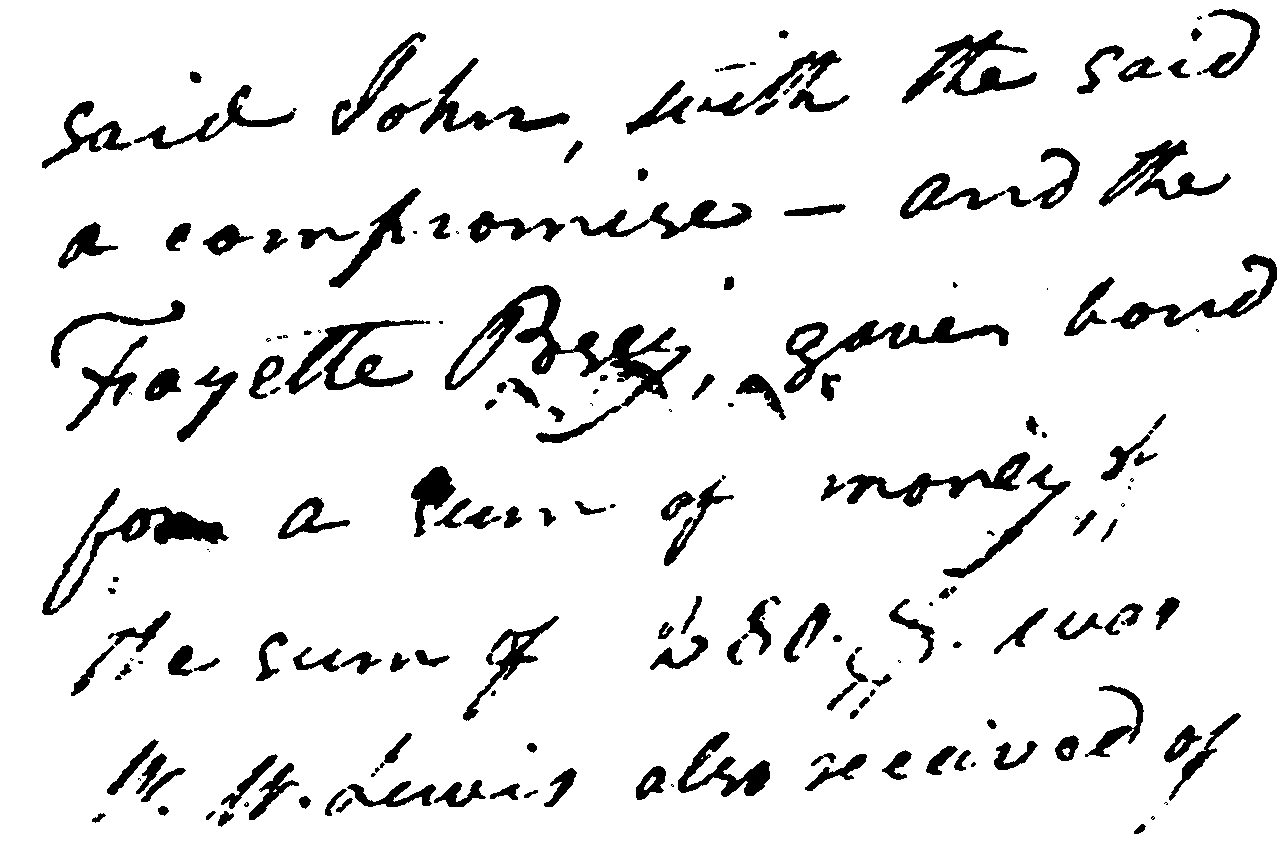 said John, with the said
a compromise — and the
Fayette gaven bond
for a sum of money, of
the sum of was
W. W. Lewis also received of